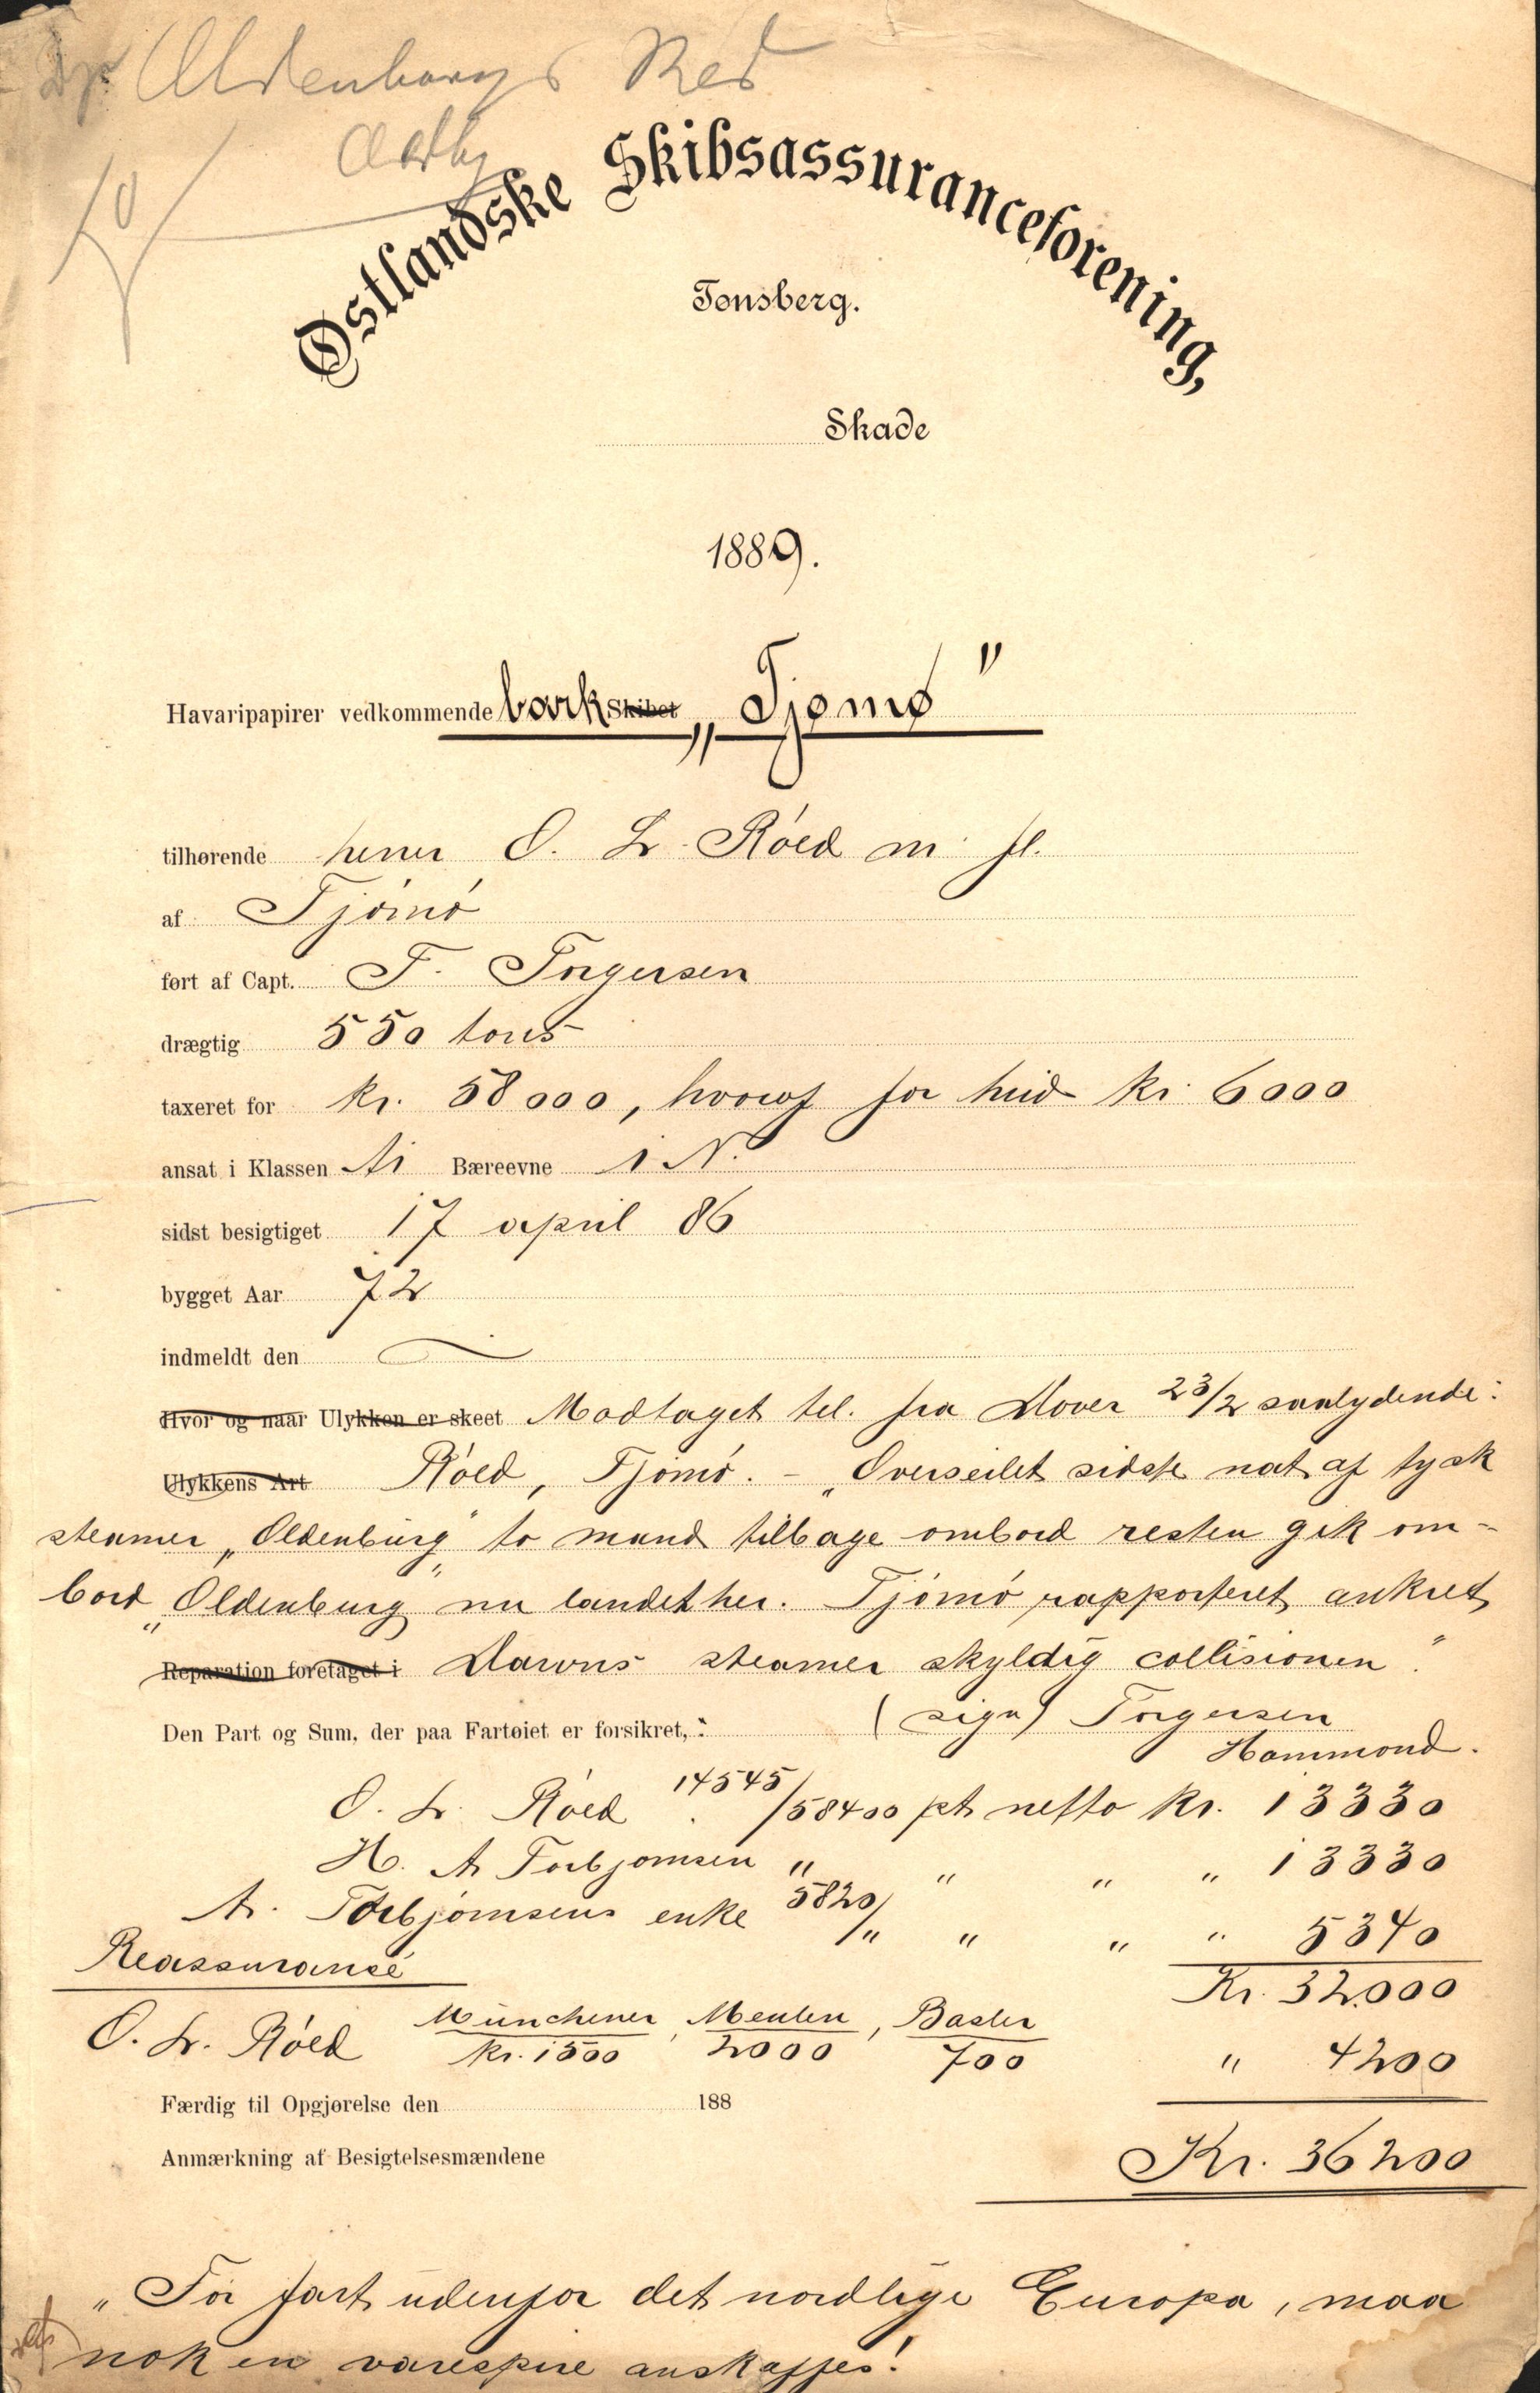 Oldenborgs Red
Østlandske Skibsassuranceforening,
Tønsberg.
Skade
1889.
Havaripapirer vedkommende bark Skibet „Tjømø"
tilhørende herrer O. L. Røed m. fl.
af Tjømø
ført af Capt. F. Torgersen
drægtig 550 tons
taxeret for kr. 58000, hvoraf for hud kr. 6000
ansat i Klassen A1 Bæreevne 1 N.
sidst besigtiget 17 april 86
bygget Aar 72
indmeldt den
Hvor og naar Ulykken er skeet Modtaget tel. fra Dover 23/2 saalydende:
Ulykkens Art Røed, Tjømø. - „Overseilet sidste nat af tysk
steamer „Oldenburg" to mand tilbage ombord resten gik om-
bord „Oldenburg" nu landet her. Tjømø rapporteret ankret
Reparation foretaget i Downs steamer skyldig collisionen".
Den Part og Sum, der paa Fartøiet er forsikret,: (sign) Torgersen
Hammond.
O. L. Røed 14545/58400 pt netto kr. 13330
H. A Torbjørnsen " " " " 13330
A. Torbjørnsens enke 5820/" " " " 5340
Kr. 32000
Reassurance
O. L. Røed Münchener kr. 1500, Menten 2000, Basler 700 " 4200
Færdig til Opgjørelse den 188
Kr. 36200
Anmærkning af Besigtelsesmændene
„For fart udenfor det nordlige Europa, maa
nok en varespire anskaffes!